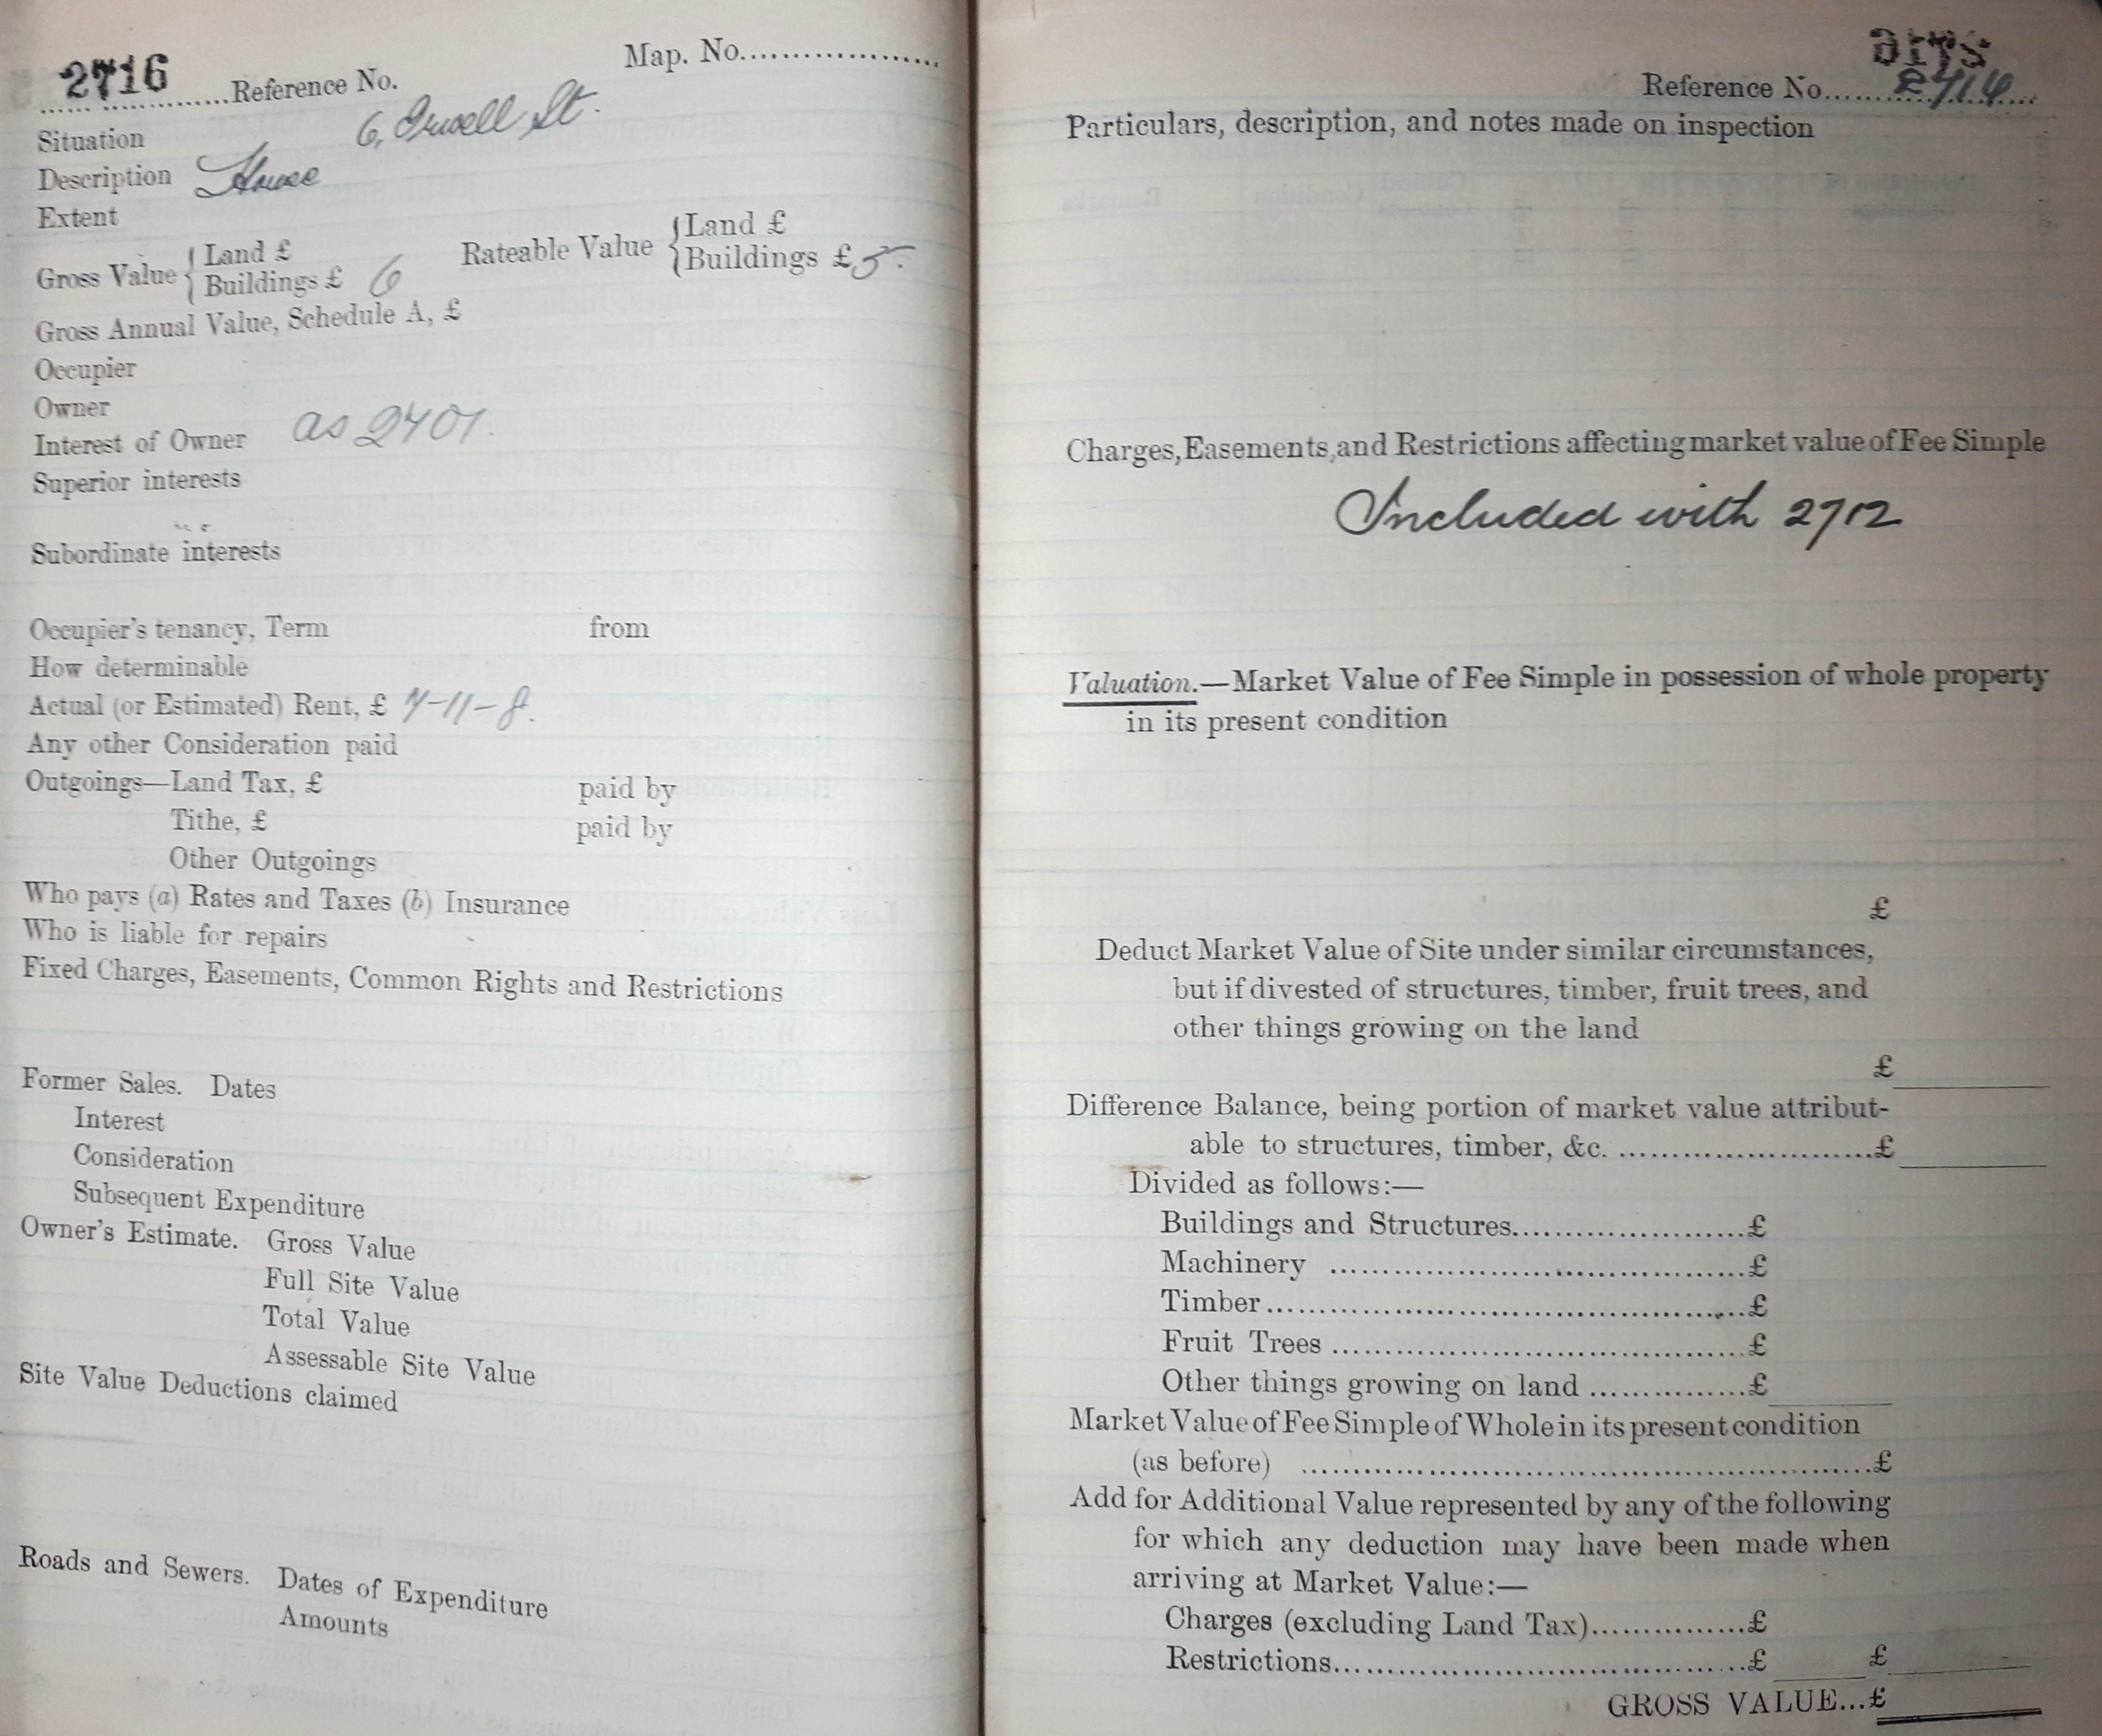 2716 Reference No. Map. No.
Situation 6, Orwell St.
Description House
Extent
Gross Value { Land £
Buildings £ 6
Rateable Value { Land £
Buildings £ 5
Gross Annual Value, Schedule A, £
Occupier
Owner
Interest of Owner as 2701.
Superior interests
Subordinate interests
Occupier's tenancy, Term from
How determinable
Actual (or Estimated) Rent, £ 7-11-8.
Any other Consideration paid
Outgoings—Land Tax, £ paid by
Tithe, £ paid by
Other Outgoings
Who pays (a) Rates and Taxes (b) Insurance
Who is liable for repairs
Fixed Charges, Easements, Common Rights and Restrictions
Former Sales. Dates
Interest
Consideration
Subsequent Expenditure
Owner's Estimate. Gross Value
Full Site Value
Total Value
Assessable Site Value
Site Value Deductions claimed
Roads and Sewers. Dates of Expenditure
Amounts
Reference No. 2716
Particulars, description, and notes made on inspection
Charges, Easements, and Restrictions affecting market value of Fee Simple
Included with 2712
Valuation.—Market Value of Fee Simple in possession of whole property
in its present condition
£
Deduct Market Value of Site under similar circumstances,
but if divested of structures, timber, fruit trees, and
other things growing on the land
£
Difference Balance, being portion of market value attribut-
able to structures, timber, &c. ........................£
Divided as follows:—
Buildings and Structures......................£
Machinery .......................................£
Timber.............................................£
Fruit Trees .......................................£
Other things growing on land ...............£
Market Value of Fee Simple of Whole in its present condition
(as before) ......................................................£
Add for Additional Value represented by any of the following
for which any deduction may have been made when
arriving at Market Value:—
Charges (excluding Land Tax)...............£
Restrictions.......................................£ £
GROSS VALUE...£